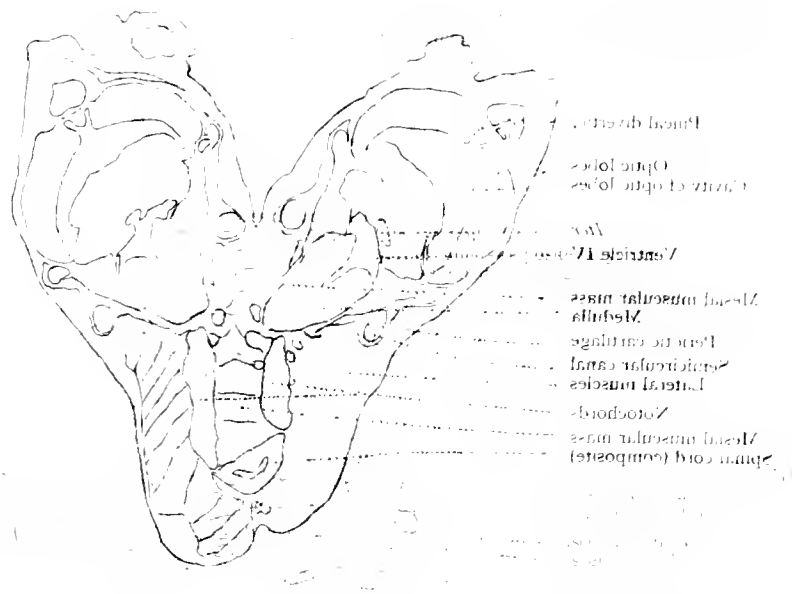 Pineal
Optic lobes
Cavity of optic lobes
Iter
Ventricle IV
Mesial muscular mass
Medulla
Periotic cartilage
Semicircular canal
Lateral muscles
Notochord
Mesial muscular mass
Spinal cord (composite)